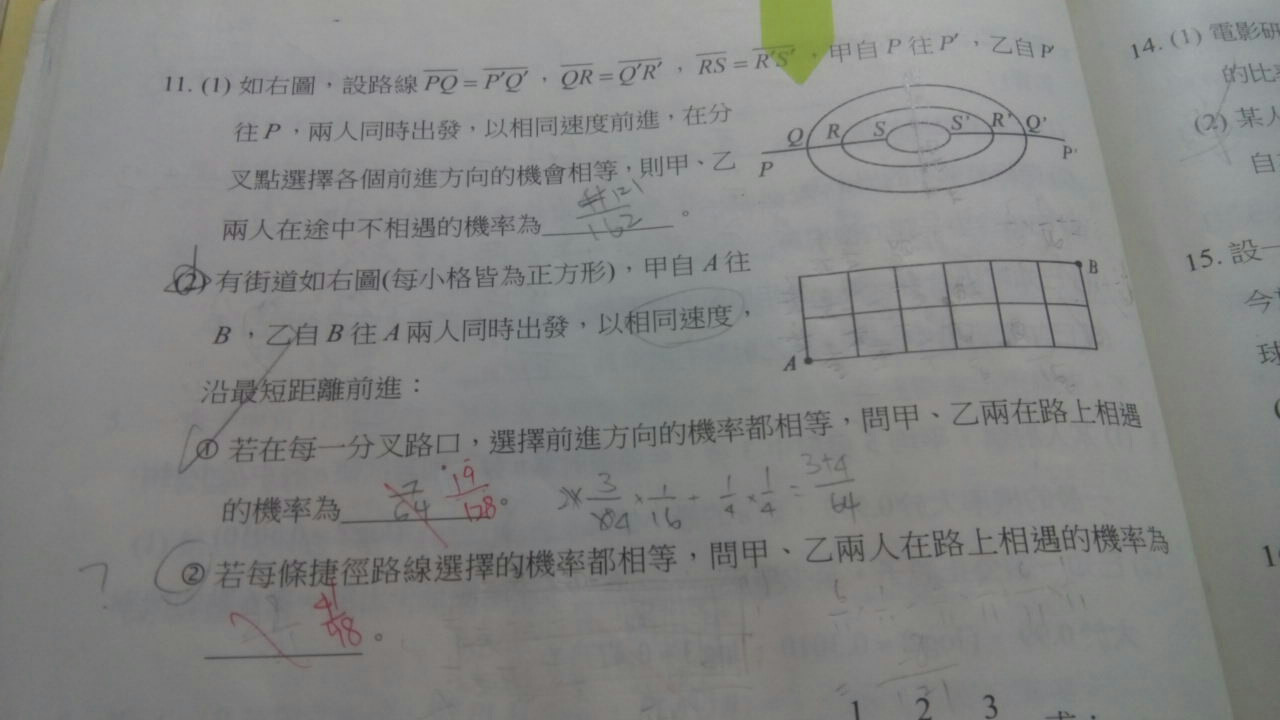 11. (1) 如右圖,設路線 PQ = P'Q' , QR = Q'R' , RS = R'S' ,甲自 P 往 P' ,乙自 P'
往 P ,兩人同時出發,以相同速度前進,在分
叉點選擇各個前進方向的機會相等,則甲、乙
兩人在途中不相遇的機率為 121/162 。
Q R S S' R' Q'
P P'
(2) 有街道如右圖(每小格皆為正方形),甲自 A 往
B ,乙自 B 往 A 兩人同時出發,以相同速度,
沿最短距離前進:
B
A
① 若在每一分叉路口,選擇前進方向的機率都相等,問甲、乙兩在路上相遇
的機率為 7/64 19/128 。 3/64 × 1/16 + 1/4 × 1/4 = 3+4/64
② 若每條捷徑路線選擇的機率都相等,問甲、乙兩人在路上相遇的機率為
? 41/98 。
14. (1) 電影研
的比
(2) 某人
自
15. 設一
今
球
1 2 3